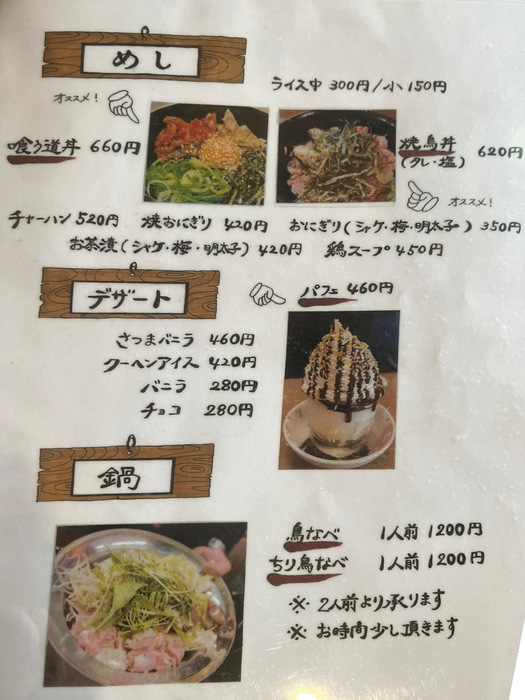 めし
ライス中 300円/小 150円
オススメ!
喰う道丼 660円
焼鳥丼 620円
(タレ・塩)
オススメ!
チャーハン 520円 焼おにぎり 420円 おにぎり(シャケ・梅・明太子) 350円
お茶漬(シャケ・梅・明太子) 420円 鶏スープ 450円
デザート
パフェ 460円
さつまバニラ 460円
クーヘンアイス 420円
バニラ 280円
チョコ 280円
鍋
鳥なべ 1人前 1200円
ちり鳥なべ 1人前 1200円
※ 2人前より承ります
※ お時間少し頂きます